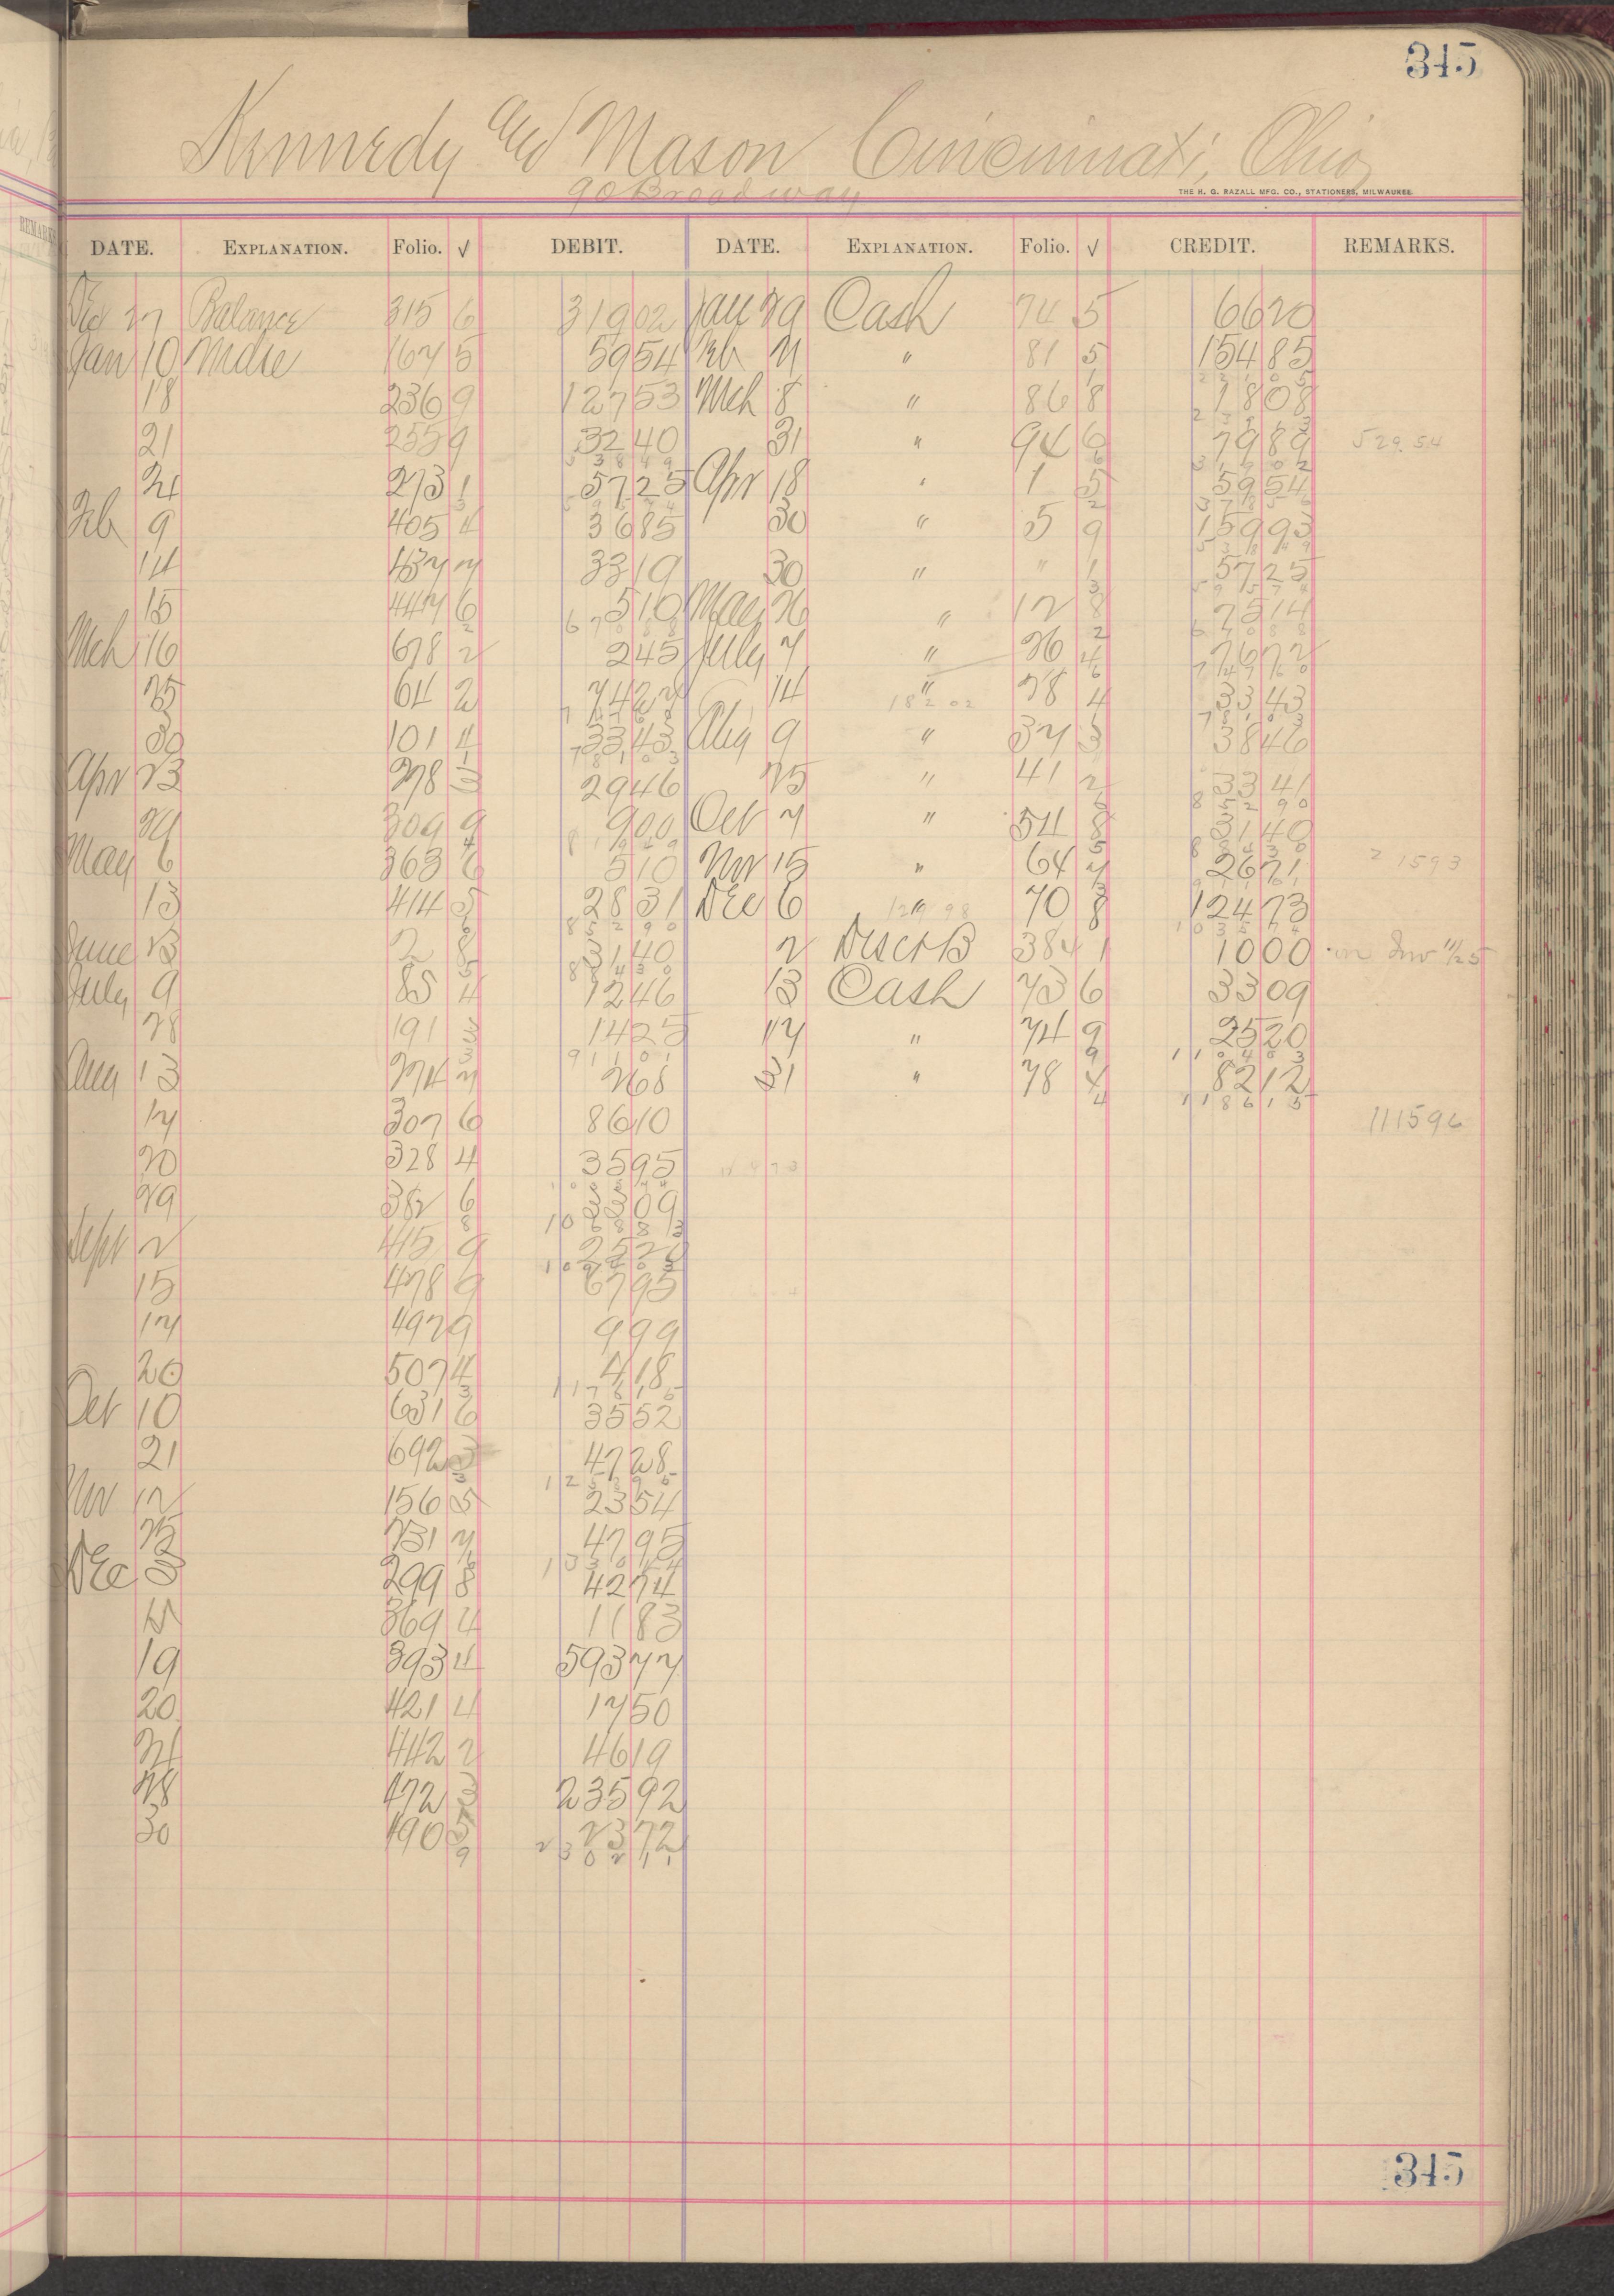 345
Kennedy and Mason Cincinnati, Ohio
90 Broadway
THE H. G. RAZALL MFG. CO., STATIONERS, MILWAUKEE.
DATE. EXPLANATION. Folio. √ DEBIT. DATE. EXPLANATION. Folio. √ CREDIT. REMARKS.
Dec 27 Balance 315 6 319 02 Jan 29 Cash 74 5 66 20
Jan 10 Mdse 167 5 59 54 Feb 21 " 81 5 154 85
18 236 9 127 53 Mch 8 " 86 8 18 08
21 255 9 32 40 31 " 94 6 79 89 529.54
24 273 1 57 25 Apr 18 " 1 5 59 54
Feb 9 405 4 36 85 30 " 5 9 159 93
14 437 7 33 19 30 " " 1 57 25
15 447 6 5 10 May 26 " 12 8 75 14
Mch 16 678 2 2 45 July 7 " 26 4 76 72
25 64 2 74 27 14 " 28 4 33 43
30 101 4 33 43 Aug 9 " 37 3 38 46
Apr 23 278 3 29 46 25 " 41 2 33 41
29 309 9 9 00 Oct 7 " 54 8 31 40
May 6 363 6 5 10 Nov 15 " 64 7 26 71
13 414 5 28 31 Dec 6 " 70 8 124 73
June 23 2 8 31 40 2 Disct B 384 1 10 00 on Inv 11/25
July 9 85 4 12 46 13 Cash 73 6 33 09
28 191 3 14 25 17 " 74 9 25 20
Aug 13 274 7 2 68 31 " 78 4 82 12
17 307 6 86 10 1115 96
20 328 4 35 95
29 382 6 33 09
Sept 2 415 9 25 20
15 478 9 67 95
17 497 9 9 99
20 507 4 4 18
Oct 10 631 6 35 52
21 692 3 47 28
Nov 12 156 5 23 54
25 231 7 47 95
Dec 3 299 8 42 74
15 369 4 11 83
19 393 4 593 77
20 421 4 17 50
24 442 2 46 19
28 472 3 235 92
30 490 5 23 72
2 3 0 2 1 1
345